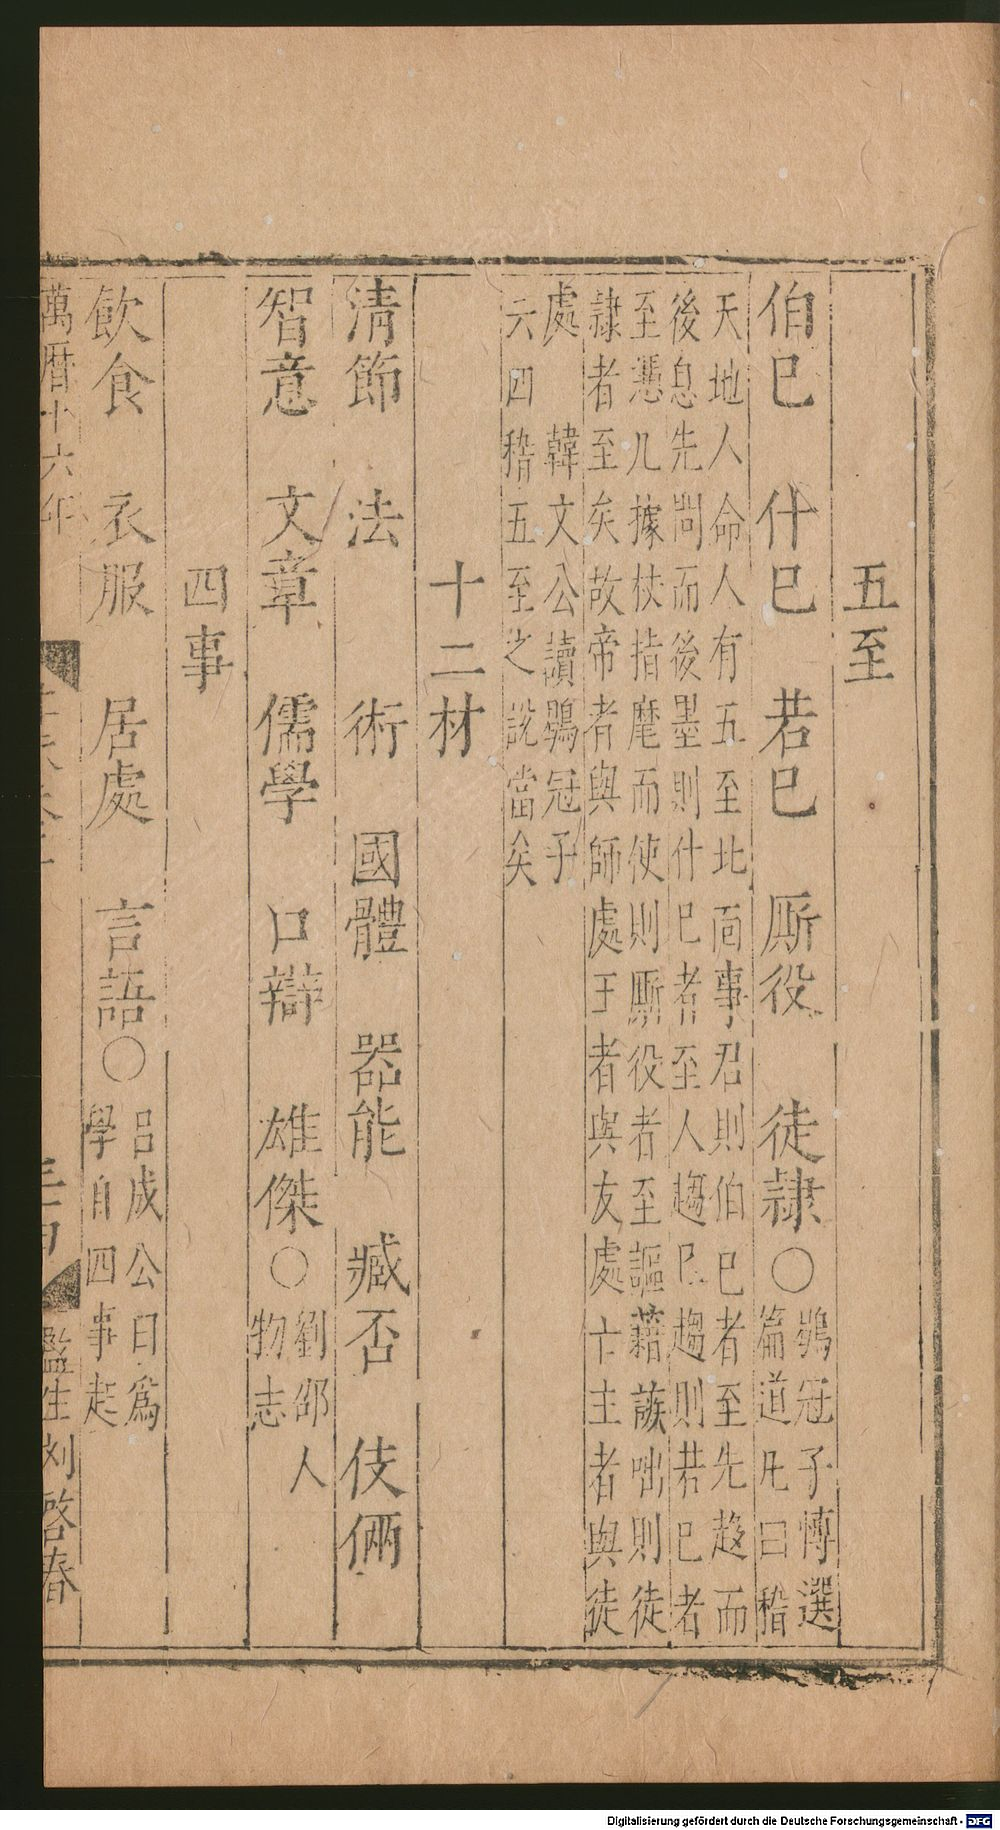 五至
伯巳　什巳　若巳　厮役　徒隸○鶡冠子愽選
篇道凡曰稽
天地人命人有五至北面事君則伯巳者至先趍而
後息先問而後墨則什巳者至人趨巳趨則若巳者
至憑几據杖指麾而使則厮役者至謳藉蔟咄則徒
隷者至矣故帝者與師處王者與友處亡主者與徒
處　韓文公讀鶡冠子
六四稽五至之說當矣
十二材
淸節　法　術　國體　器能　臧否　伎倆
智意　文章　儒學　口辯　雄傑○劉邵人
物志
四事
飲食　衣服　居處　言語○呂成公曰爲
學自四事起
萬曆十六年
監生刘啓春
Digitalisierung gefördert durch die Deutsche Forschungsgemeinschaft - DFG